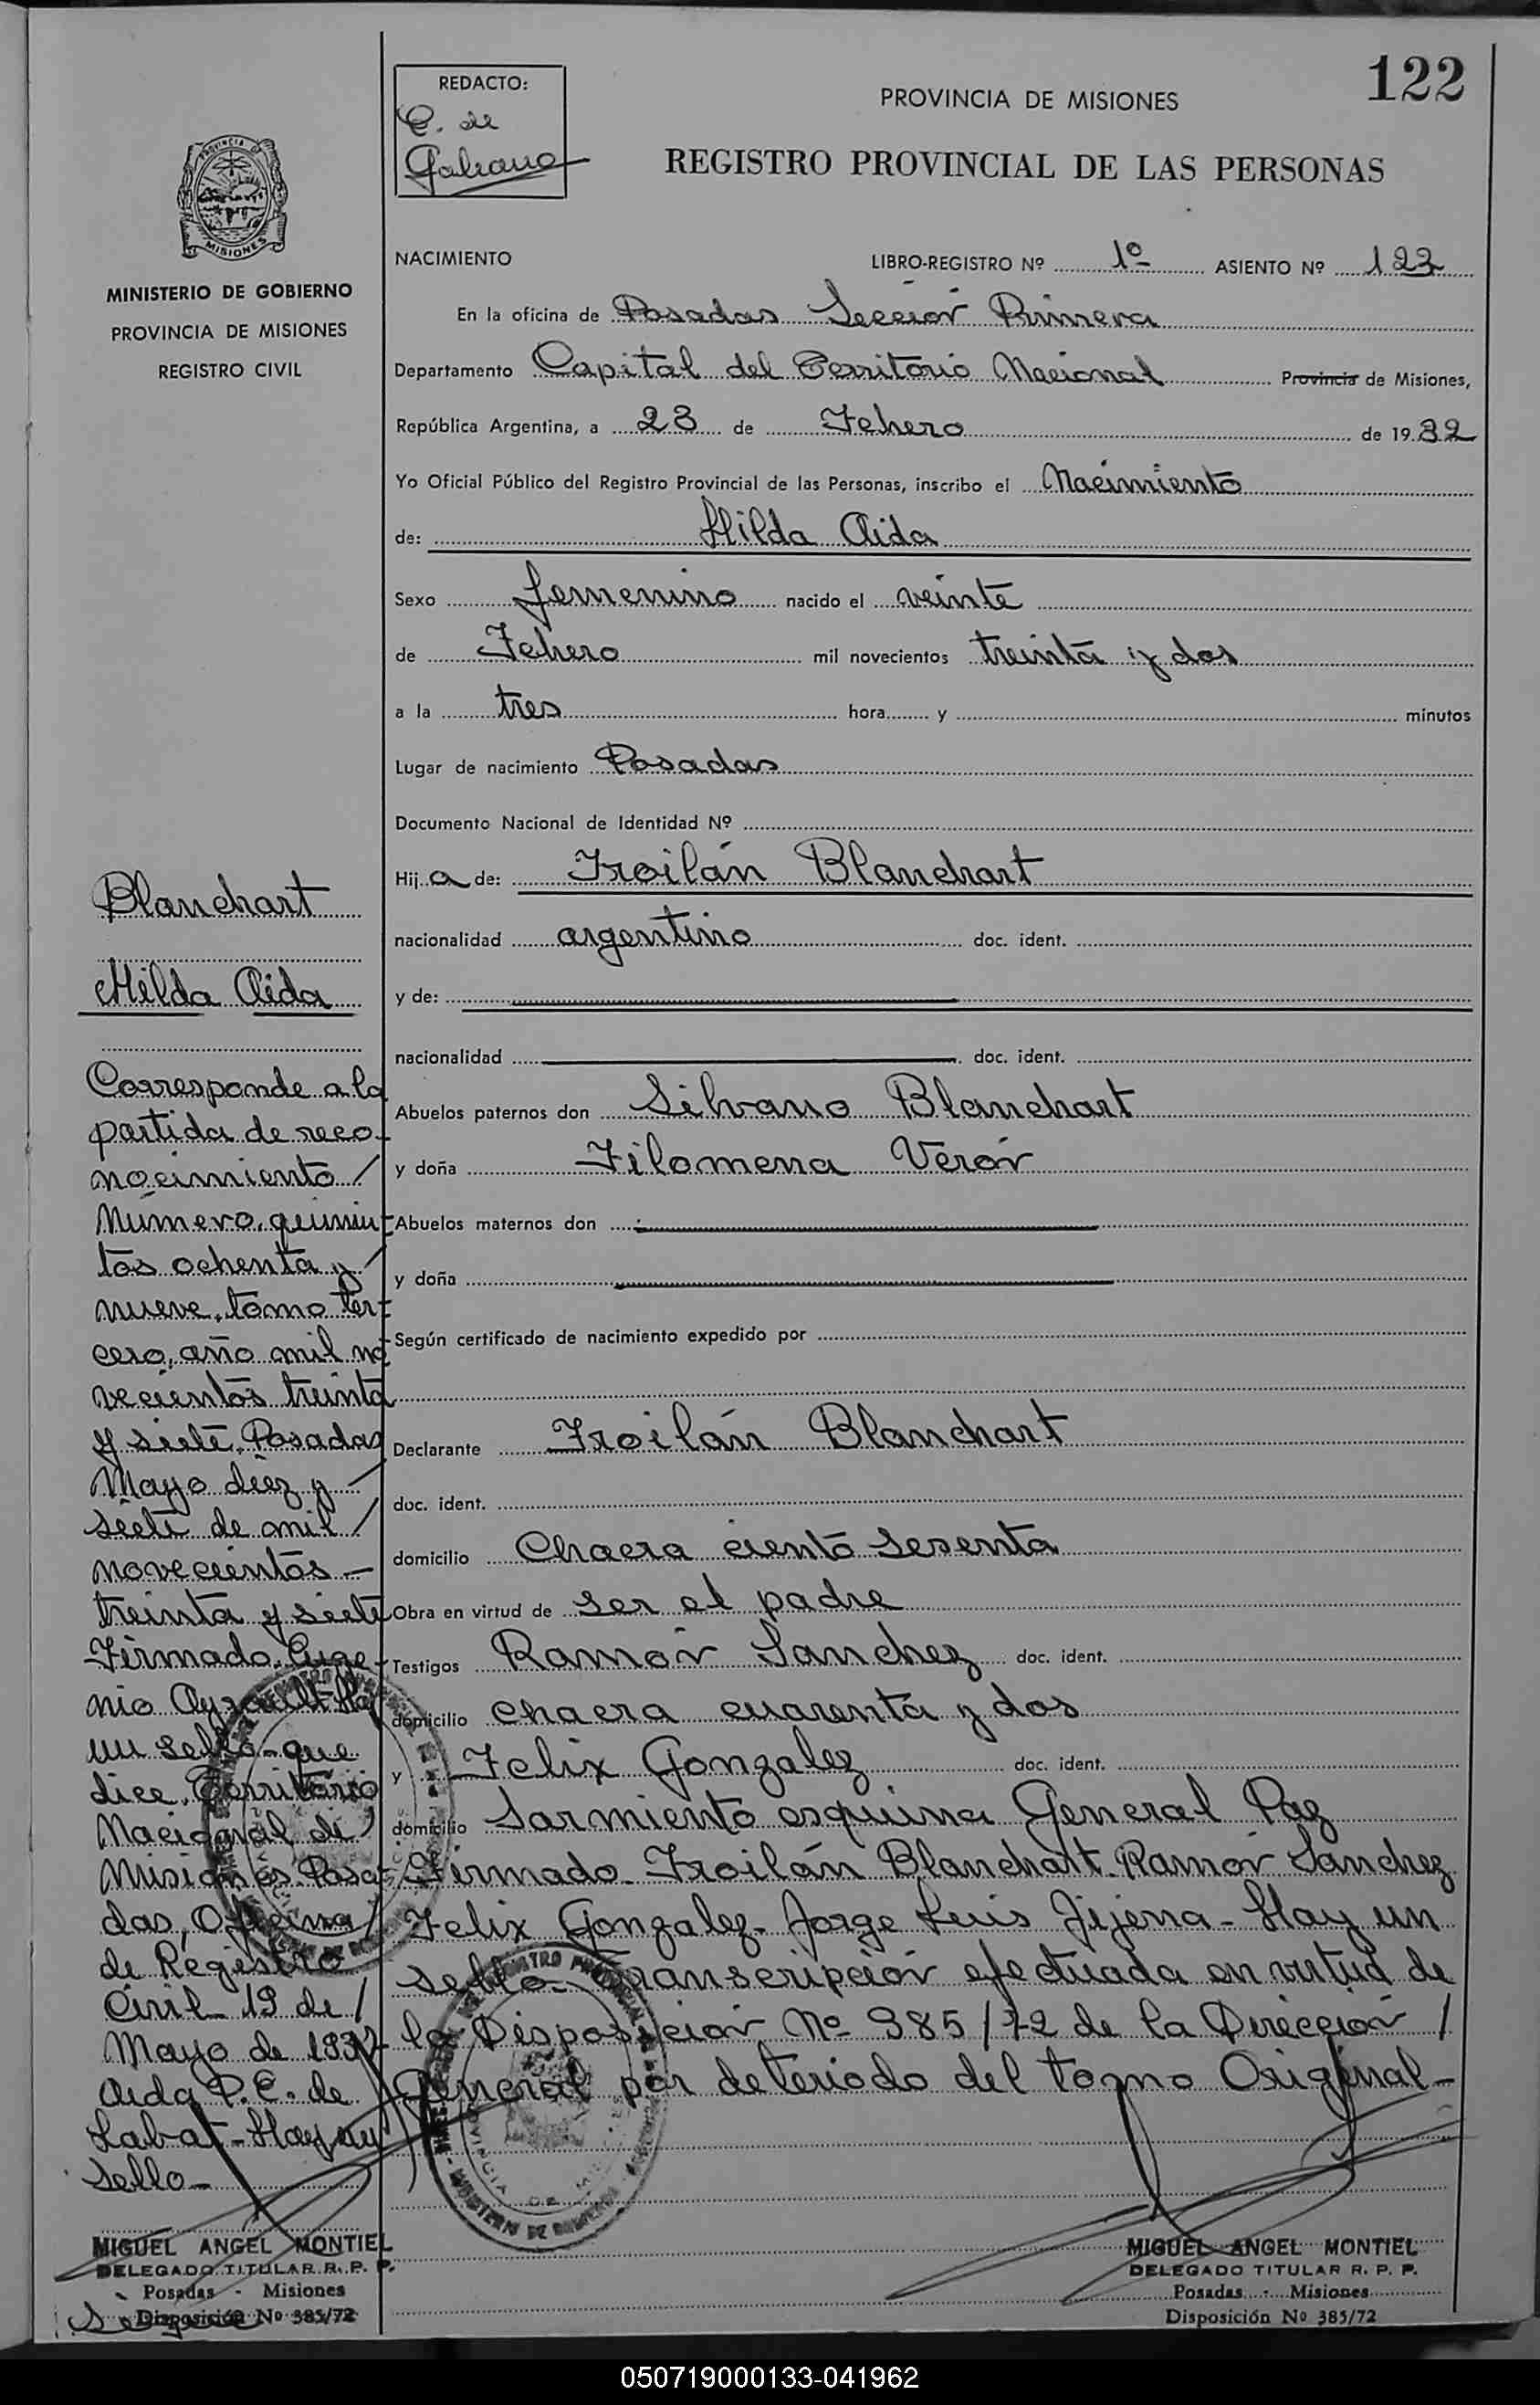 122
REDACTO:
C. de
Galeano
PROVINCIA DE MISIONES
REGISTRO PROVINCIAL DE LAS PERSONAS
MISIONES
MINISTERIO DE GOBIERNO
PROVINCIA DE MISIONES
REGISTRO CIVIL
NACIMIENTO LIBRO-REGISTRO Nº 1º ASIENTO Nº 122
En la oficina de Posadas Sección Primera
Departamento Capital del Territorio Nacional Provincia de Misiones,
República Argentina, a 23 de Febrero de 1932
Yo Oficial Público del Registro Provincial de las Personas, inscribo el Nacimiento
de: Hilda Aida
Sexo femenino nacido el veinte
de Febrero mil novecientos treinta y dos
a la tres hora y minutos
Lugar de nacimiento Posadas
Documento Nacional de Identidad Nº
Hij a de: Froilán Blanchart
nacionalidad argentino doc. ident.
y de:
nacionalidad doc. ident.
Abuelos paternos don Silvano Blanchart
y doña Filomena Verón
Abuelos maternos don
y doña
Según certificado de nacimiento expedido por
Declarante Froilán Blanchart
doc. ident.
domicilio Chacra ciento sesenta
Obra en virtud de ser el padre
Testigos Ramón Sanchez doc. ident.
domicilio chacra cuarenta y dos
y Felix Gonzalez doc. ident.
domicilio Sarmiento esquina General Paz
Firmado Froilán Blanchart Ramón Sanchez
Felix Gonzalez - Jorge Luis Jijena - Hay un
sello - Transcripción efectuada en virtud de
la Disposición Nº 385/72 de la Dirección /
General por deteriodo del tomo Original -
MIGUEL ANGEL MONTIEL
DELEGADO TITULAR R. P. P.
Posadas - Misiones
Disposición Nº 385/72
Blanchart
Hilda Aida
Corresponde a la
partida de reco-
nocimiento /
Número quinien-
tos ochenta y /
nueve, tomo ter-
cero, año mil no-
vecientos treinta
y siete. Posadas
Mayo diez y /
siete de mil /
novecientos -
treinta y siete
Firmado. Euge-
nio Ayrault - Hay
un sello - que
dice, Territorio
Nacional de
Misiones - Posa-
das, Oficina /
de Registro
Civil - 19 de /
Mayo de 1937
Aida P. C. de
Labat - Hay un
sello -
MIGUEL ANGEL MONTIEL
DELEGADO TITULAR R. P. P.
Posadas - Misiones
Disposición Nº 385/72
050719000133-041962